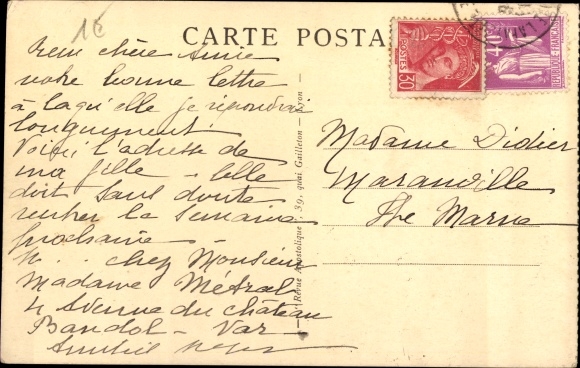 1€
CARTE POSTA
chère Amie
votre bonne lettre
à laqu'elle je répondrai
longuement
Voici l'adresse de
ma fille - elle
doit sans doute
rentrer la Semaine
prochaine
chez Monsieur
Madame Métral
Avenue du château
Bandol - Var
"Revue Apostolique", 39, quai Gailleton - Lyon -
POSTES
30
40
Madame Didier
Maranville
Hte Marne